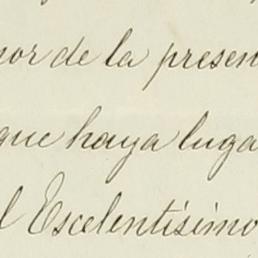 or de la presen
que haya luga
l Escelentísimo